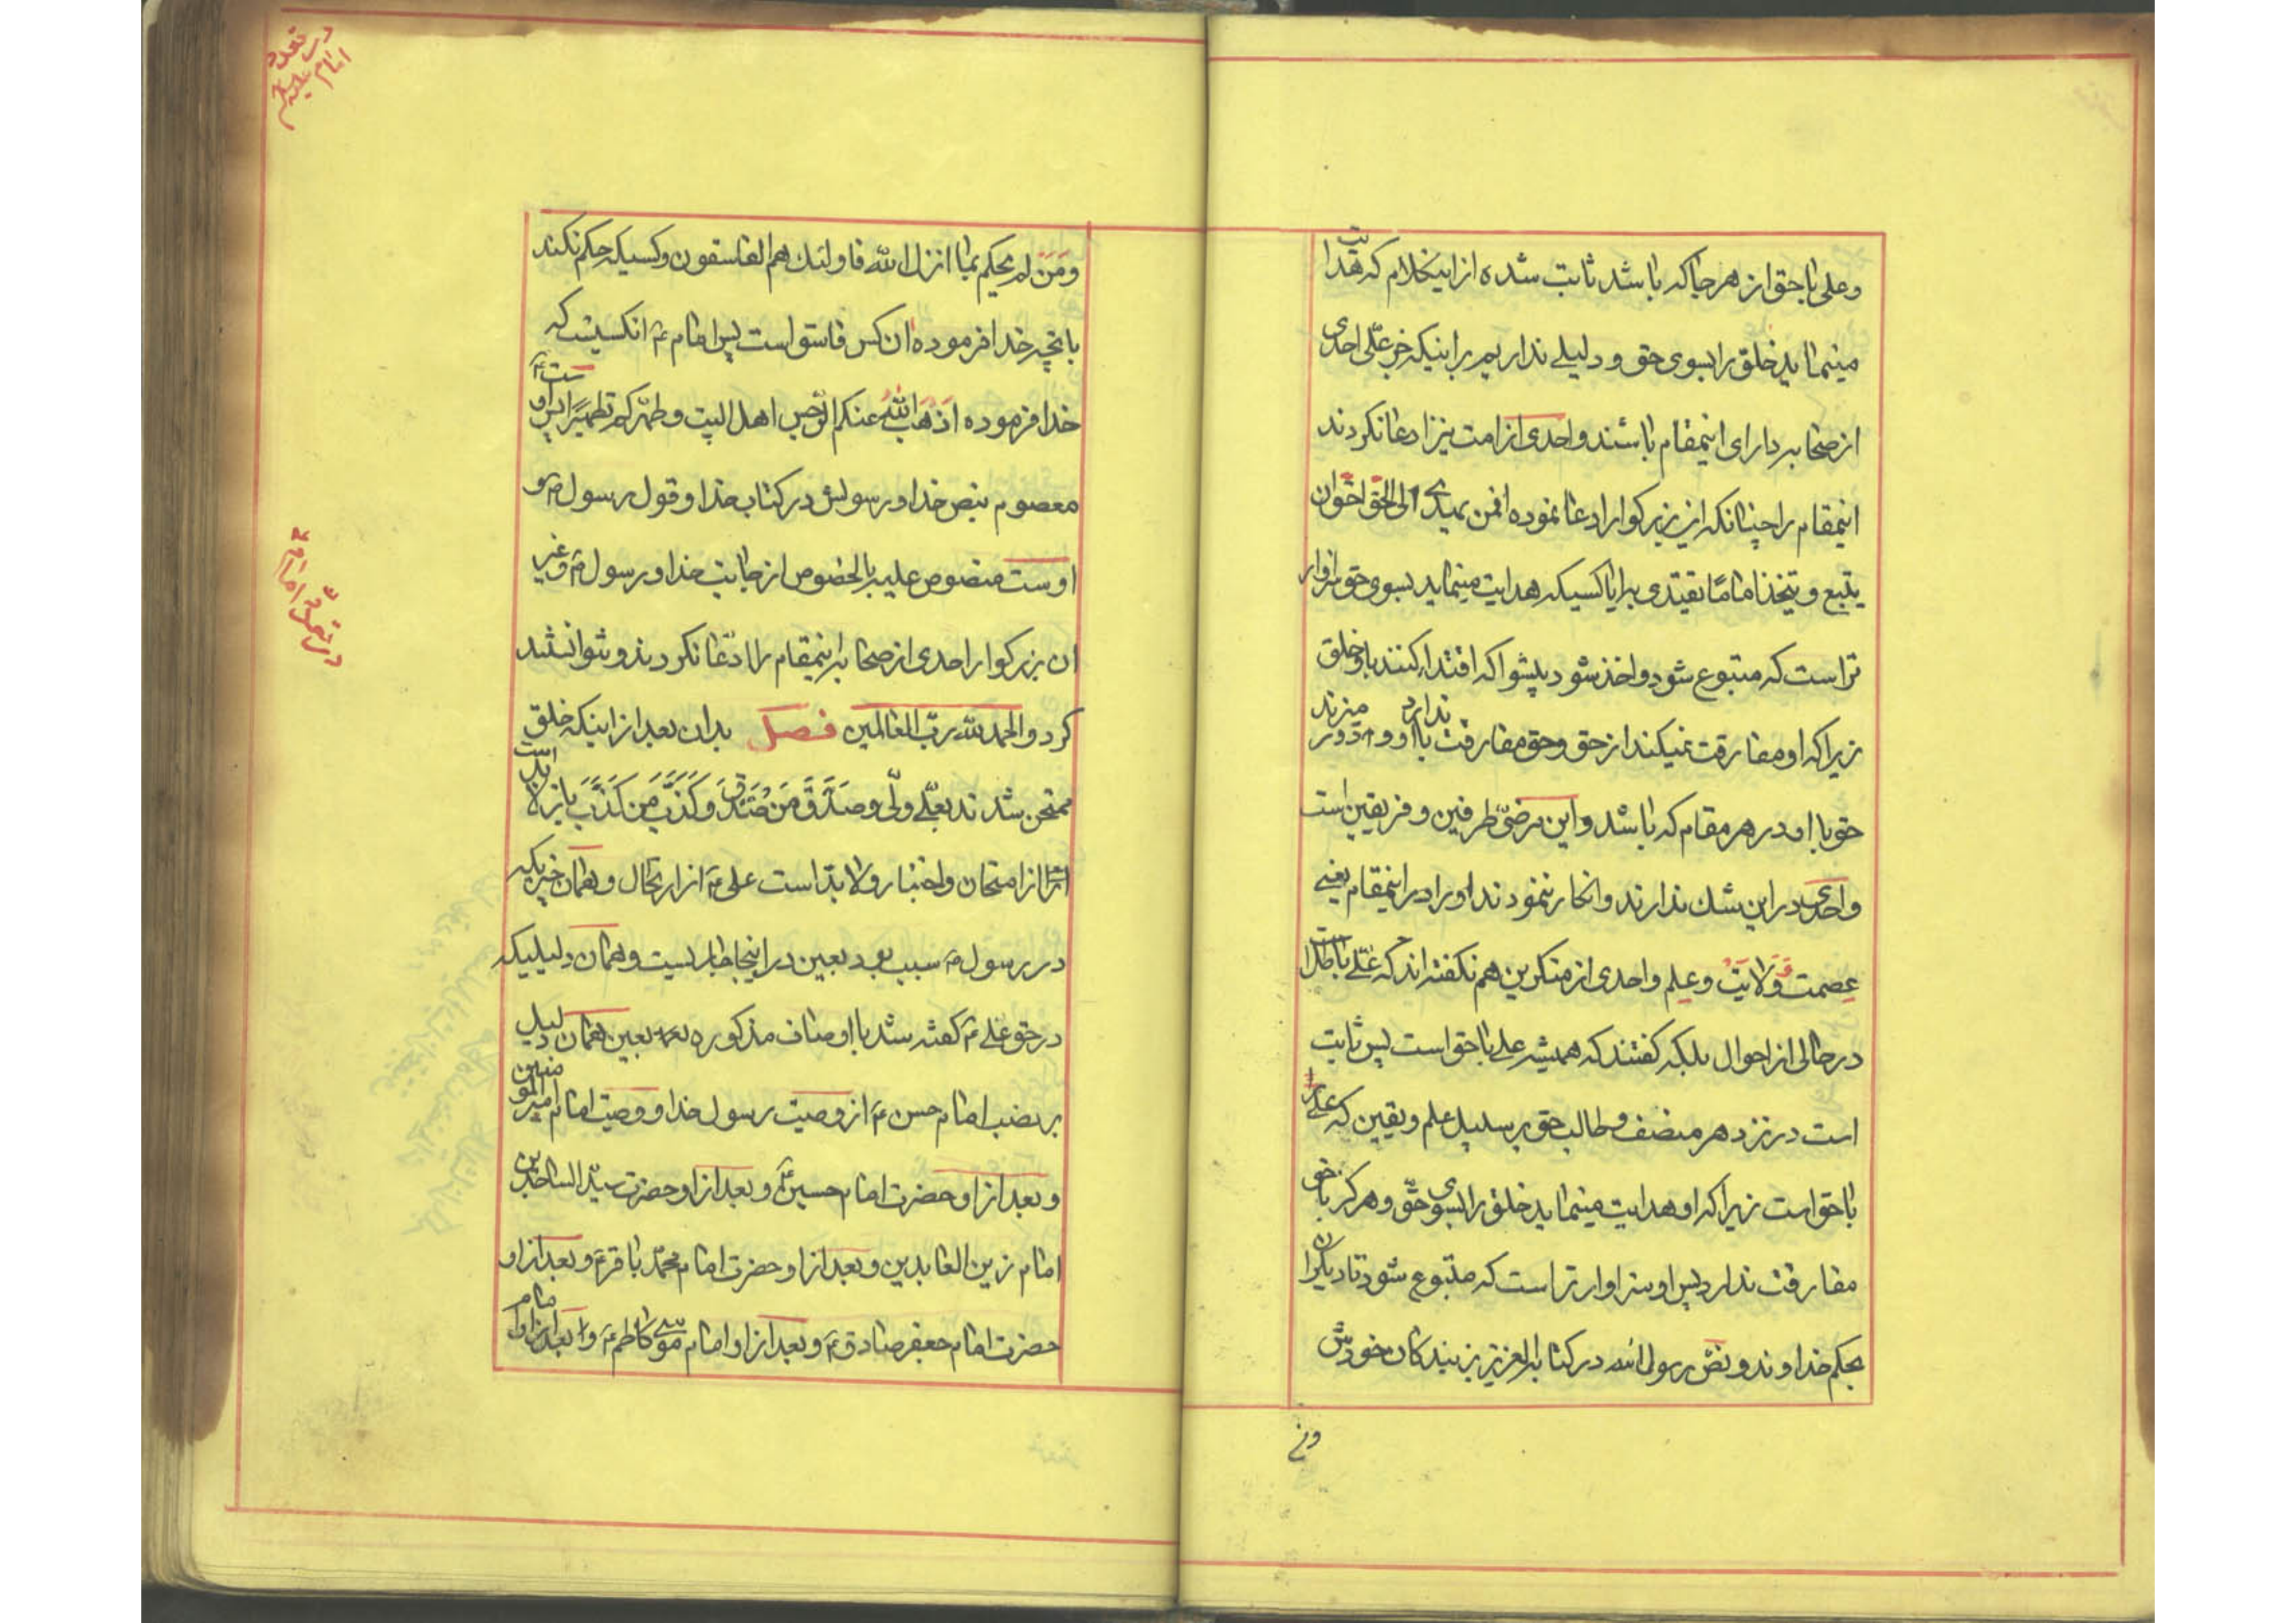 و علی با حق از هر جا که باشد ثابت شده از اینکلام که هدایت
مینماید خلق را بسوی حق و دلیلی نداریم بر اینکه جز علی احدی
از صحابه دارای اینمقام باشند و احدی از امت نیز ادعا نکردند
اینمقام را چنانکه این بزرکوار ادعا نموده افمن یهدی الی الحق احق ان
یتبع و یتخذ اماما یقتدی به ایا کسیکه هدایت مینماید بسوی حق سزاوار
تر است که متبوع شود و اخذ شود پیشوا که اقتدا کنند باو خلق
زیرا که او مفارقت نمیکند از حق و حق مفارقت ندارد با او و دور میزند
حق با او در هر مقام که باشد و این مرضی طرفین و فریقین است
و احدی در این شک ندارند و انکار ننمودند او را در اینمقام یعنی
عصمت و ولایت و علم و احدی از منکرین هم نکفته اند که علی با باطل است
در حالی از احوال بلکه کفتند که همیشه علی با حق است پس ثابت
است در نزد هر منصف و طالب حق بر سبیل علم و یقین که علی
با حق است زیرا که او هدایت مینماید خلق را بسوی حق و هر کز با حق
مفارقت ندارد پس او سزاوار تر است که متبوع شود تا دیکران
بحکم خداوند و نص رسول الله در کتابه العزیز ببندکان خودش
و من
در تعدد
امام علیه
و من لم یحکم بما انزل الله فاولئک هم الفاسقون و کسیکه حکم نکند
بانچه خدا فرموده ان کس فاسق است پس امام ع انکسیست که
خدا فرموده اذهب الله عنکم الرجس اهل البیت و طهرکم تطهیرا پس او ست
معصوم بنص خدا و رسولش در کتاب خدا و قول رسول ص و
اوست منصوص علیه بالخصوص از جانب خدا و رسول ص و غیر
ان بزرکوار احدی از صحابه اینمقام را ادعا نکردند و نتوانستند
کرد و الحمد لله رب العالمین فصل بدان بعد از اینکه خلق
ممتحن شدند بعلی ولی و صدق من صدق و کذب من کذب باز لابد است
از امتحان و اختبار و لابد است علی ع از ارتحال و همان خبریکه
در رسول ص سبب بود بعین در اینجا جاریست و همان دلیلیکه
در حق علی ع کفته شد با اوصاف مذکوره بعین همان دلیل
بر نصب امام حسن ع از وصیت رسول خدا و وصیت امام امیر المومنین
و بعد از او حضرت امام حسین ع و بعد از او حضرت سید الساجدین
امام زین العابدین و بعد از او حضرت امام محمد باقر ع و بعد از او
حضرت امام جعفر صادق ع و بعد از او امام موسی کاظم ع و بعد از او امام